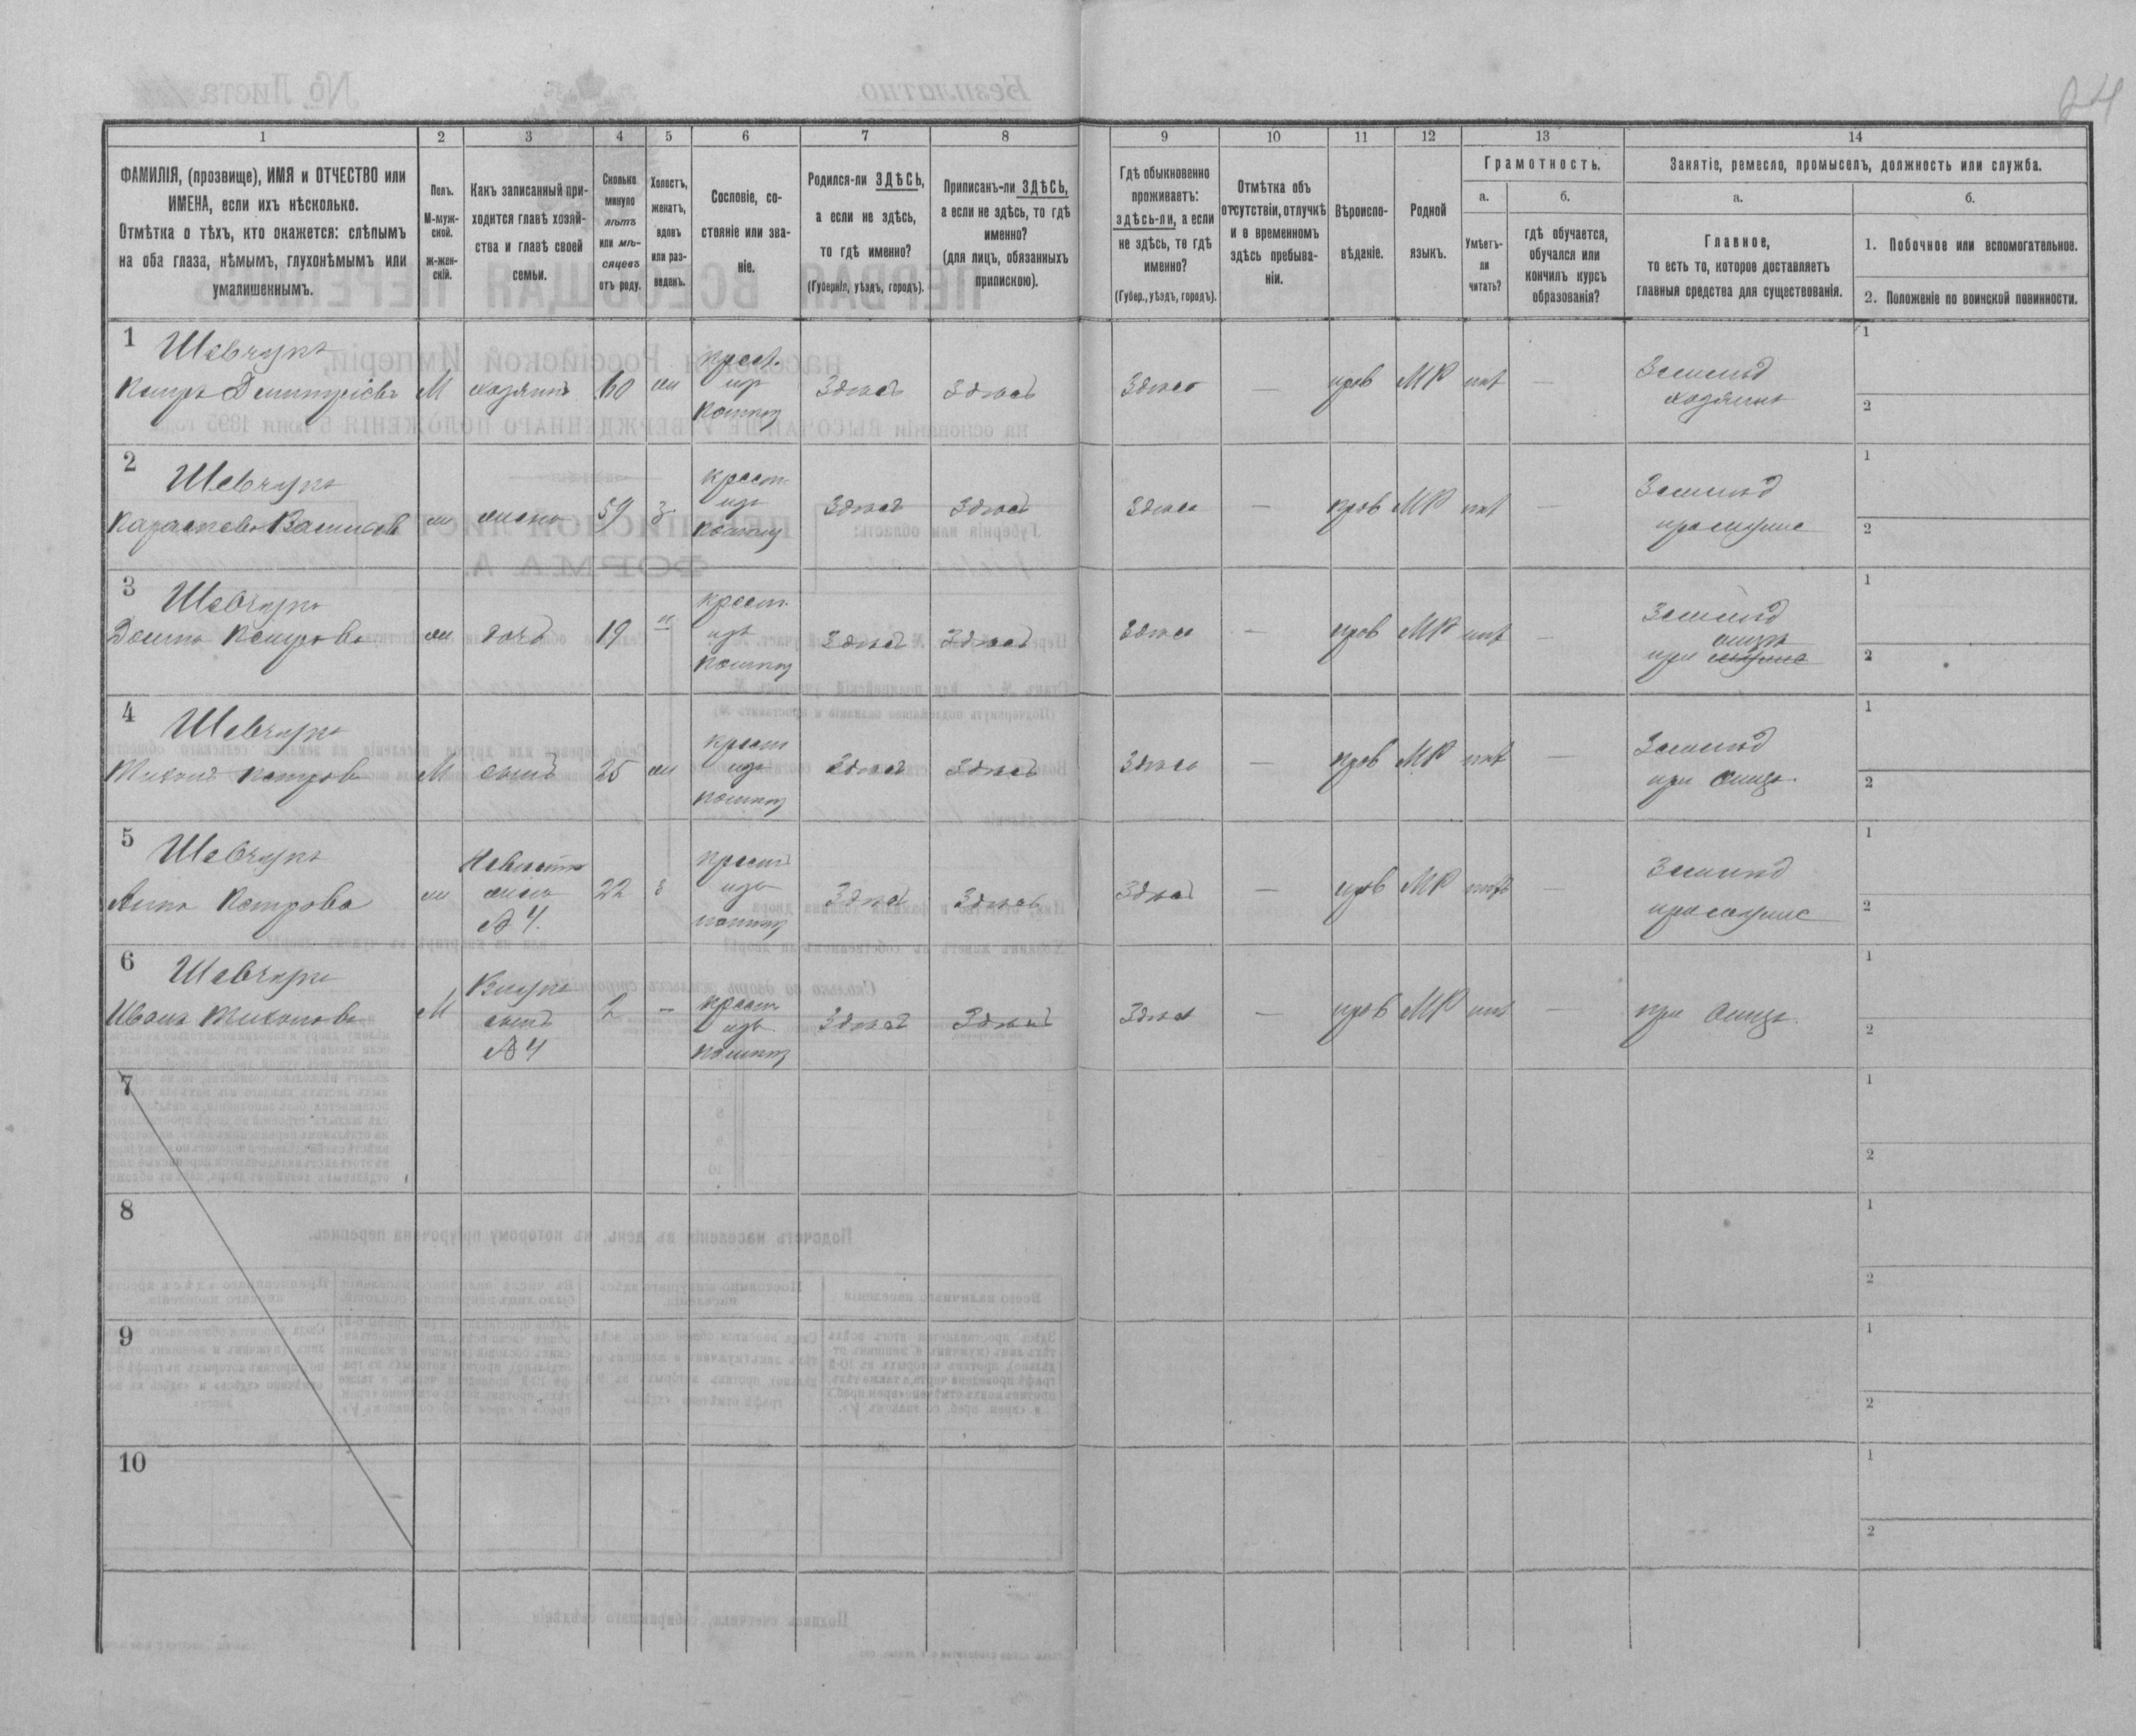 24
1 2 3 4 5 6 7 8 9 10 11 12 13 14
ФАМИЛІЯ, (прозвище), ИМЯ и ОТЧЕСТВО или
ИМЕНА, если ихъ нѣсколько.
Отмѣтка о тѣхъ, кто окажется: слѣпымъ
на оба глаза, нѣмымъ, глухонѣмымъ или
умалишеннымъ.
Полъ.
М-муж-
ской.
Ж-жен-
скій.
Какъ записанный при-
ходится главѣ хозяй-
ства и главѣ своей
семьи.
Сколько
минуло
лѣтъ
или мѣ-
сяцевъ
отъ роду.
Холостъ,
женатъ,
вдовъ
или раз-
веденъ.
Сословіе, со-
стояніе или зва-
ніе.
Родился-ли ЗДѢСЬ,
а если не здѣсь,
то гдѣ именно?
(Губернія, уѣздъ, городъ).
Приписанъ-ли ЗДѢСЬ,
а если не здѣсь, то гдѣ
именно?
(для лицъ, обязанныхъ
припискою).
Гдѣ обыкновенно
проживаетъ:
здѣсь-ли, а если
не здѣсь, то гдѣ
именно?
(Губер., уѣздъ, городъ).
Отмѣтка объ
отсутствіи, отлучкѣ
и о временномъ
здѣсь пребыва-
ніи.
Вѣроиспо-
вѣданіе.
Родной
языкъ.
Грамотность.
а. б.
Умѣетъ-
ли
читать?
гдѣ обучается,
обучался или
кончилъ курсъ
образованія?
Занятіе, ремесло, промыселъ, должность или служба.
а. б.
Главное,
то есть то, которое доставляетъ
главныя средства для существованія.
1. Побочное или вспомогательное.
2. Положеніе по воинской повинности.
1 Шевчукъ
Петръ Дмитріевъ М хозяинъ 60 жн крест. изъ Здѣсь Здѣсь Здѣсь — прав МР нѣт — Землед
хозяинъ
1
2
2 Шевчукъ
жн жена 59 з крест. изъ Здѣсь Здѣсь Здѣсь — прав МР нѣт — Землед
при мужѣ
1
2
3 Шевчукъ
Петрова жн дочь 19 крест. изъ Здѣсь Здѣсь Здѣсь — прав МР нѣт — Землед
при отцѣ
1
2
4 Шевчукъ
Тихонъ Петров М сынъ 25 жн крест изъ Здѣсь Здѣсь Здѣсь — прав МР нѣт — Землед
при отцѣ
1
2
5 Шевчукъ
Анна Петрова жн Невѣстка жена № 4. 22 з крест изъ Здѣсь Здѣсь Здѣсь — прав МР нѣт — Землед
при мужѣ
1
2
6 Шевчукъ
Иванъ Тихоновъ М Внукъ сынъ № 4 2 — крест изъ Здѣсь Здѣсь Здѣсь — прав МР нѣт — при отцѣ
1
2
7
1
2
8
1
2
9
1
2
10
1
2